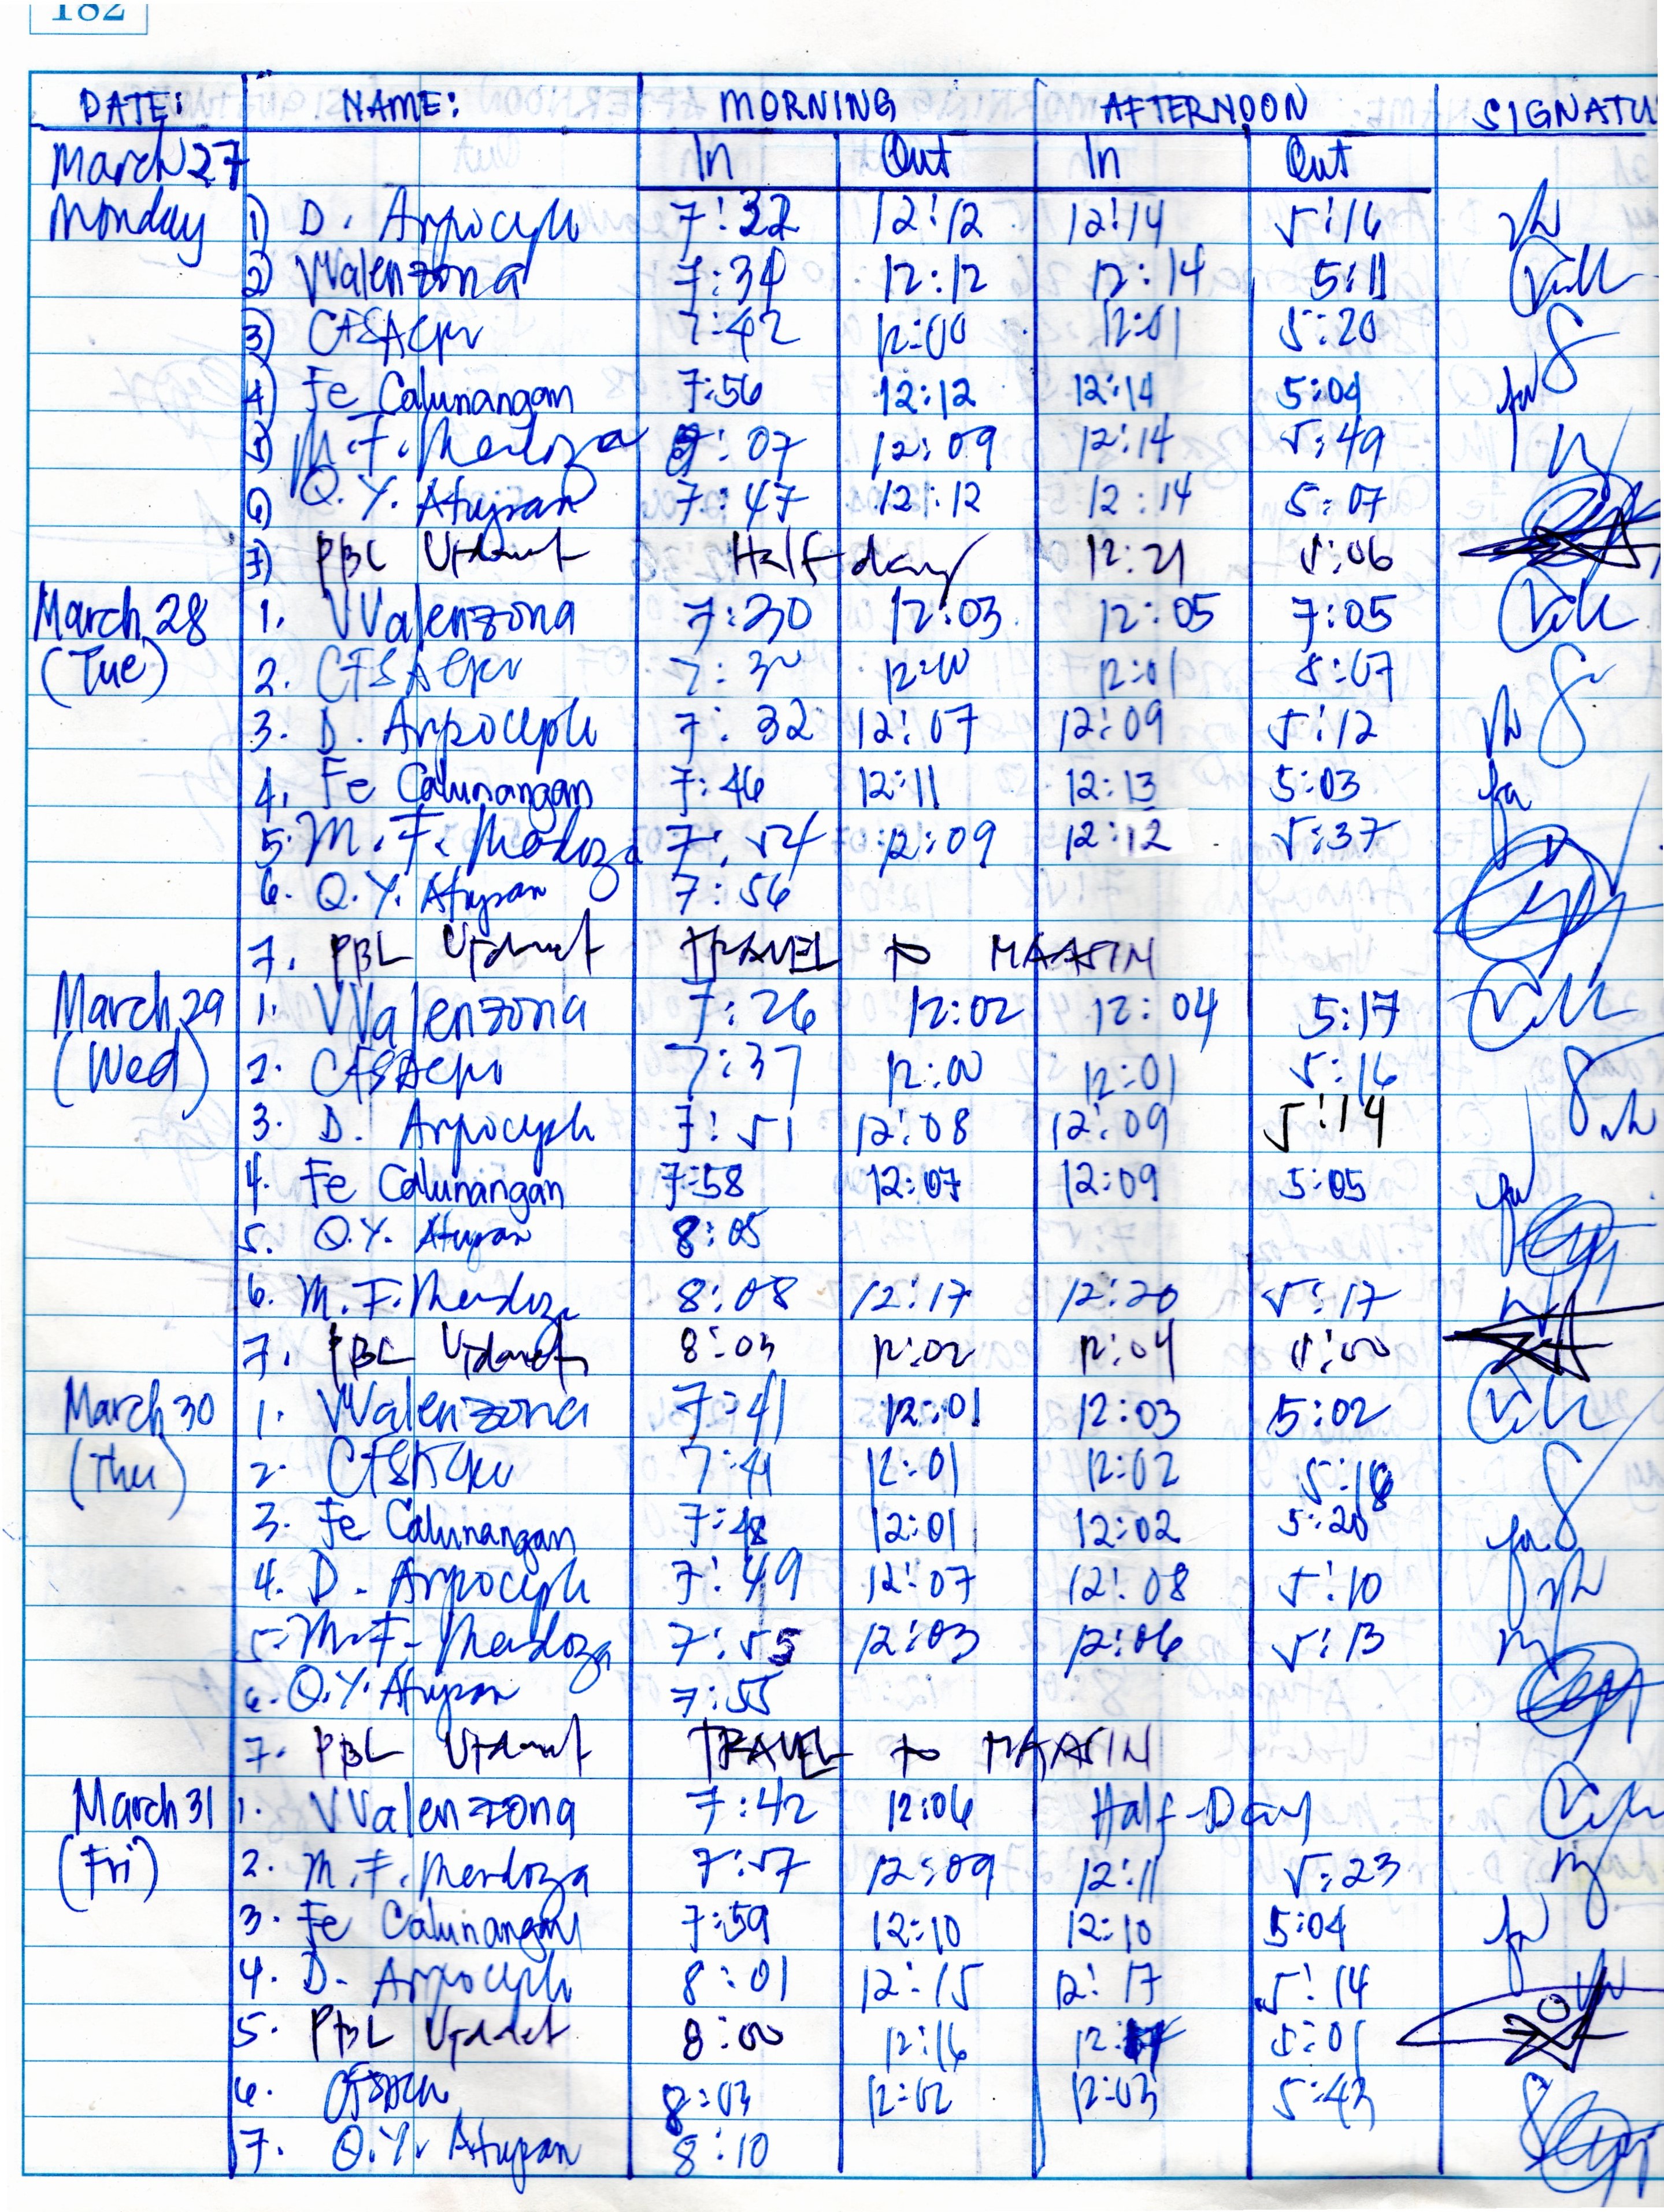 182
DATE: NAME: MORNING AFTERNOON SIGNATU
March 27 In Out In Out
Monday 1) D. Arpoceph 7:32 12:12 12:14 5:16
2) VValenzona 7:31 12:12 12:14 5:11
3) 7:42 12:00 12:01 5:20
4) Fe Calunangan 7:56 12:12 12:14 5:04
5) M. F. Mendoza :07 12:09 12:14 5:49
6) Q. Y. Atupan 7:47 12:12 12:14 5:07
7) PBL Updant Half day 12:21 5:06
March 28 1. VValenzona 7:30 12:03 12:05 7:05
(Tue) 2. 7:30 12:00 12:01 8:07
3. D. Arpoceph 7:32 12:07 12:09 5:12
4. Fe Calunangan 7:46 12:11 12:13 5:03
5. M. F. Mendoza 7:54 12:09 12:12 5:37
6. Q. Y. Atupan 7:56
7. PBL Updant TRAVEL to MAASIN
March 29 1. VValenzona 7:26 12:02 12:04 5:17
(Wed) 2. 7:37 12:00 12:01 5:16
3. D. Arpoceph 7:51 12:08 12:09 5:14
4. Fe Calunangan 7:58 12:07 12:09 5:05
5. Q.Y. Atupan 8:05
6. M. F. Mendoza 8:08 12:17 12:20 5:17
7. PBL Updant 8:03 12:02 12:04 5:00
March 30 1. VValenzona 7:41 12:01 12:03 5:02
(Thu) 2. 7:41 12:01 12:02 5:18
3. Fe Calunangan 7:48 12:01 12:02 5:20
4. D. Arpoceph 7:49 12:07 12:08 5:10
5. M. F. Mendoza 7:55 12:03 12:06 5:13
6. Q.Y. Atupan 7:55
7. PBL Updant TRAVEL to MAASIN
March 31 1. VValenzona 7:42 12:06 Half-Day
(Fri) 2. M. F. Mendoza 7:57 12:09 12:11 5:23
3. Fe Calunangan 7:59 12:10 12:10 5:04
4. D. Arpoceph 8:01 12:15 12:17 5:14
5. PBL Updant 8:00 12:16 12:17 5:01
6. 8:03 12:02 12:03 5:43
7. Q.Y. Atupan 8:10